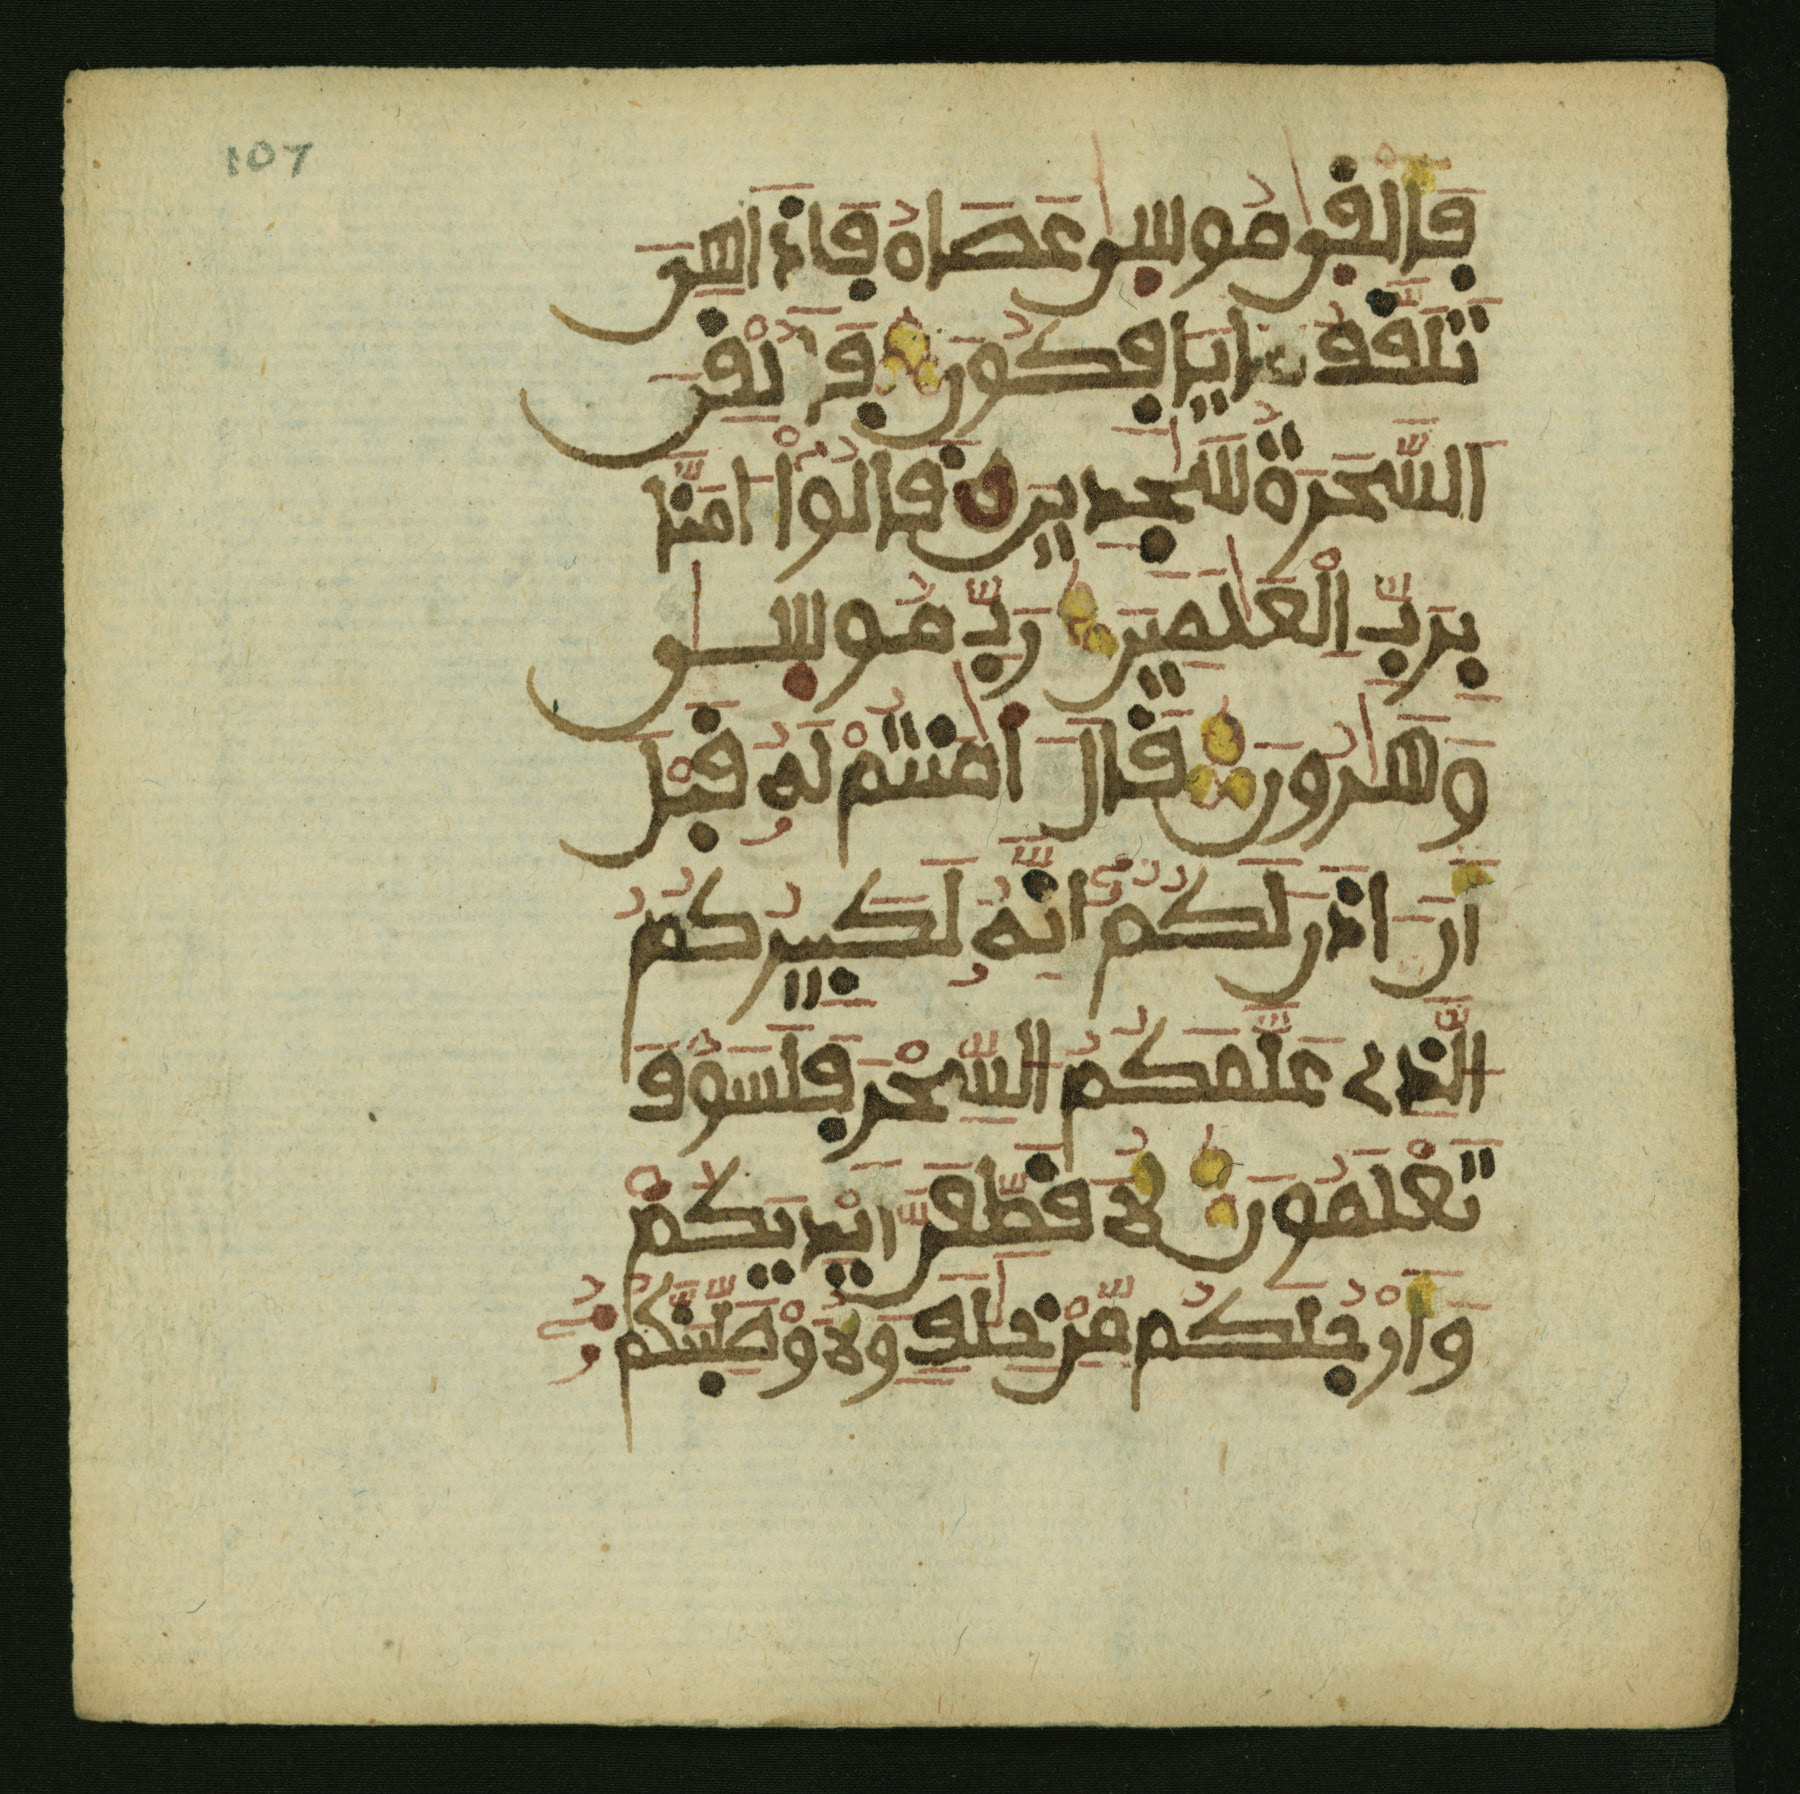 107
فَأَلْقىٰ مُوسىٰ عَصَاهُ فَإِذَا هِيَ
تَلَقَّفُ مَا يَافِكُونَ فَأُلْقِيَ
السَّحَرَةُ سَٰجِدِينَ قَالُوٓاْ ءَامَنَّا
بِرَبِّ الْعَٰلَمِينَ رَبِّ مُوسىٰ
وَهَٰرُونَ قَالَ ءَا۬مَنتُمْ لَهُۥ قَبْلَ
أَنَ اٰذَنَ لَكُمُۥٓ إِنَّهُۥ لَكَبِيرُكُمُ
الَّذِے عَلَّمَكُمُ السِّحْرَ فَلَسَوْفَ
تَعْلَمُونَ لَأُقَطِّعَنَّ أَيْدِيَكُمْ
وَأَرْجُلَكُم مِّنْ خِلَٰفٍ وَلَأُوصَلِّبَنَّكُمُۥٓ